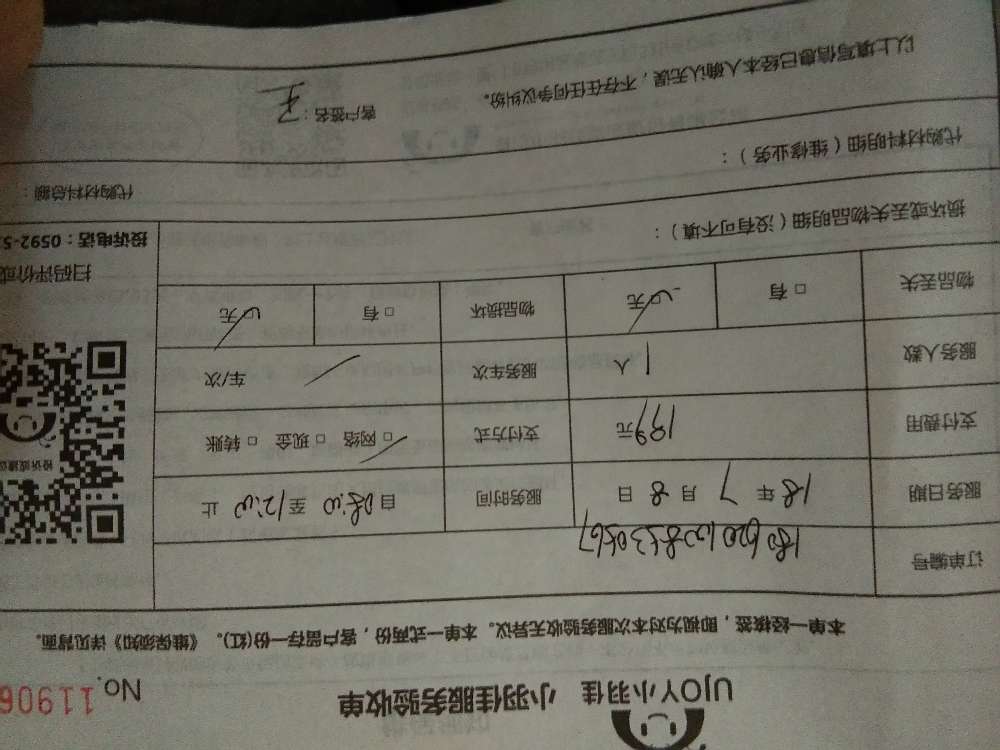 UJOY小羽佳 小羽佳服务验收单
No.11906
本单一经核签，即视为对本次服务验收无异议。本单一式两份，客户留存一份(红)。《维保须知》详见背面。
订单编号
服务日期 18年7月8日 服务时间 自08:00至12:00止
支付费用 199元 支付方式 □网络 □现金 □转账
服务人数 1人 服务车次 车/次
物品丢失 □有 □无 物品损坏 □有 □无
投诉或建议
扫码评价或
投诉电话：0592-5
损坏或丢失物品明细（没有可不填）：
代购材料明细（维修业务）：
代购材料总额：
以上填写信息已经本人确认无误，不存在任何争议纠纷。
客户签名：王